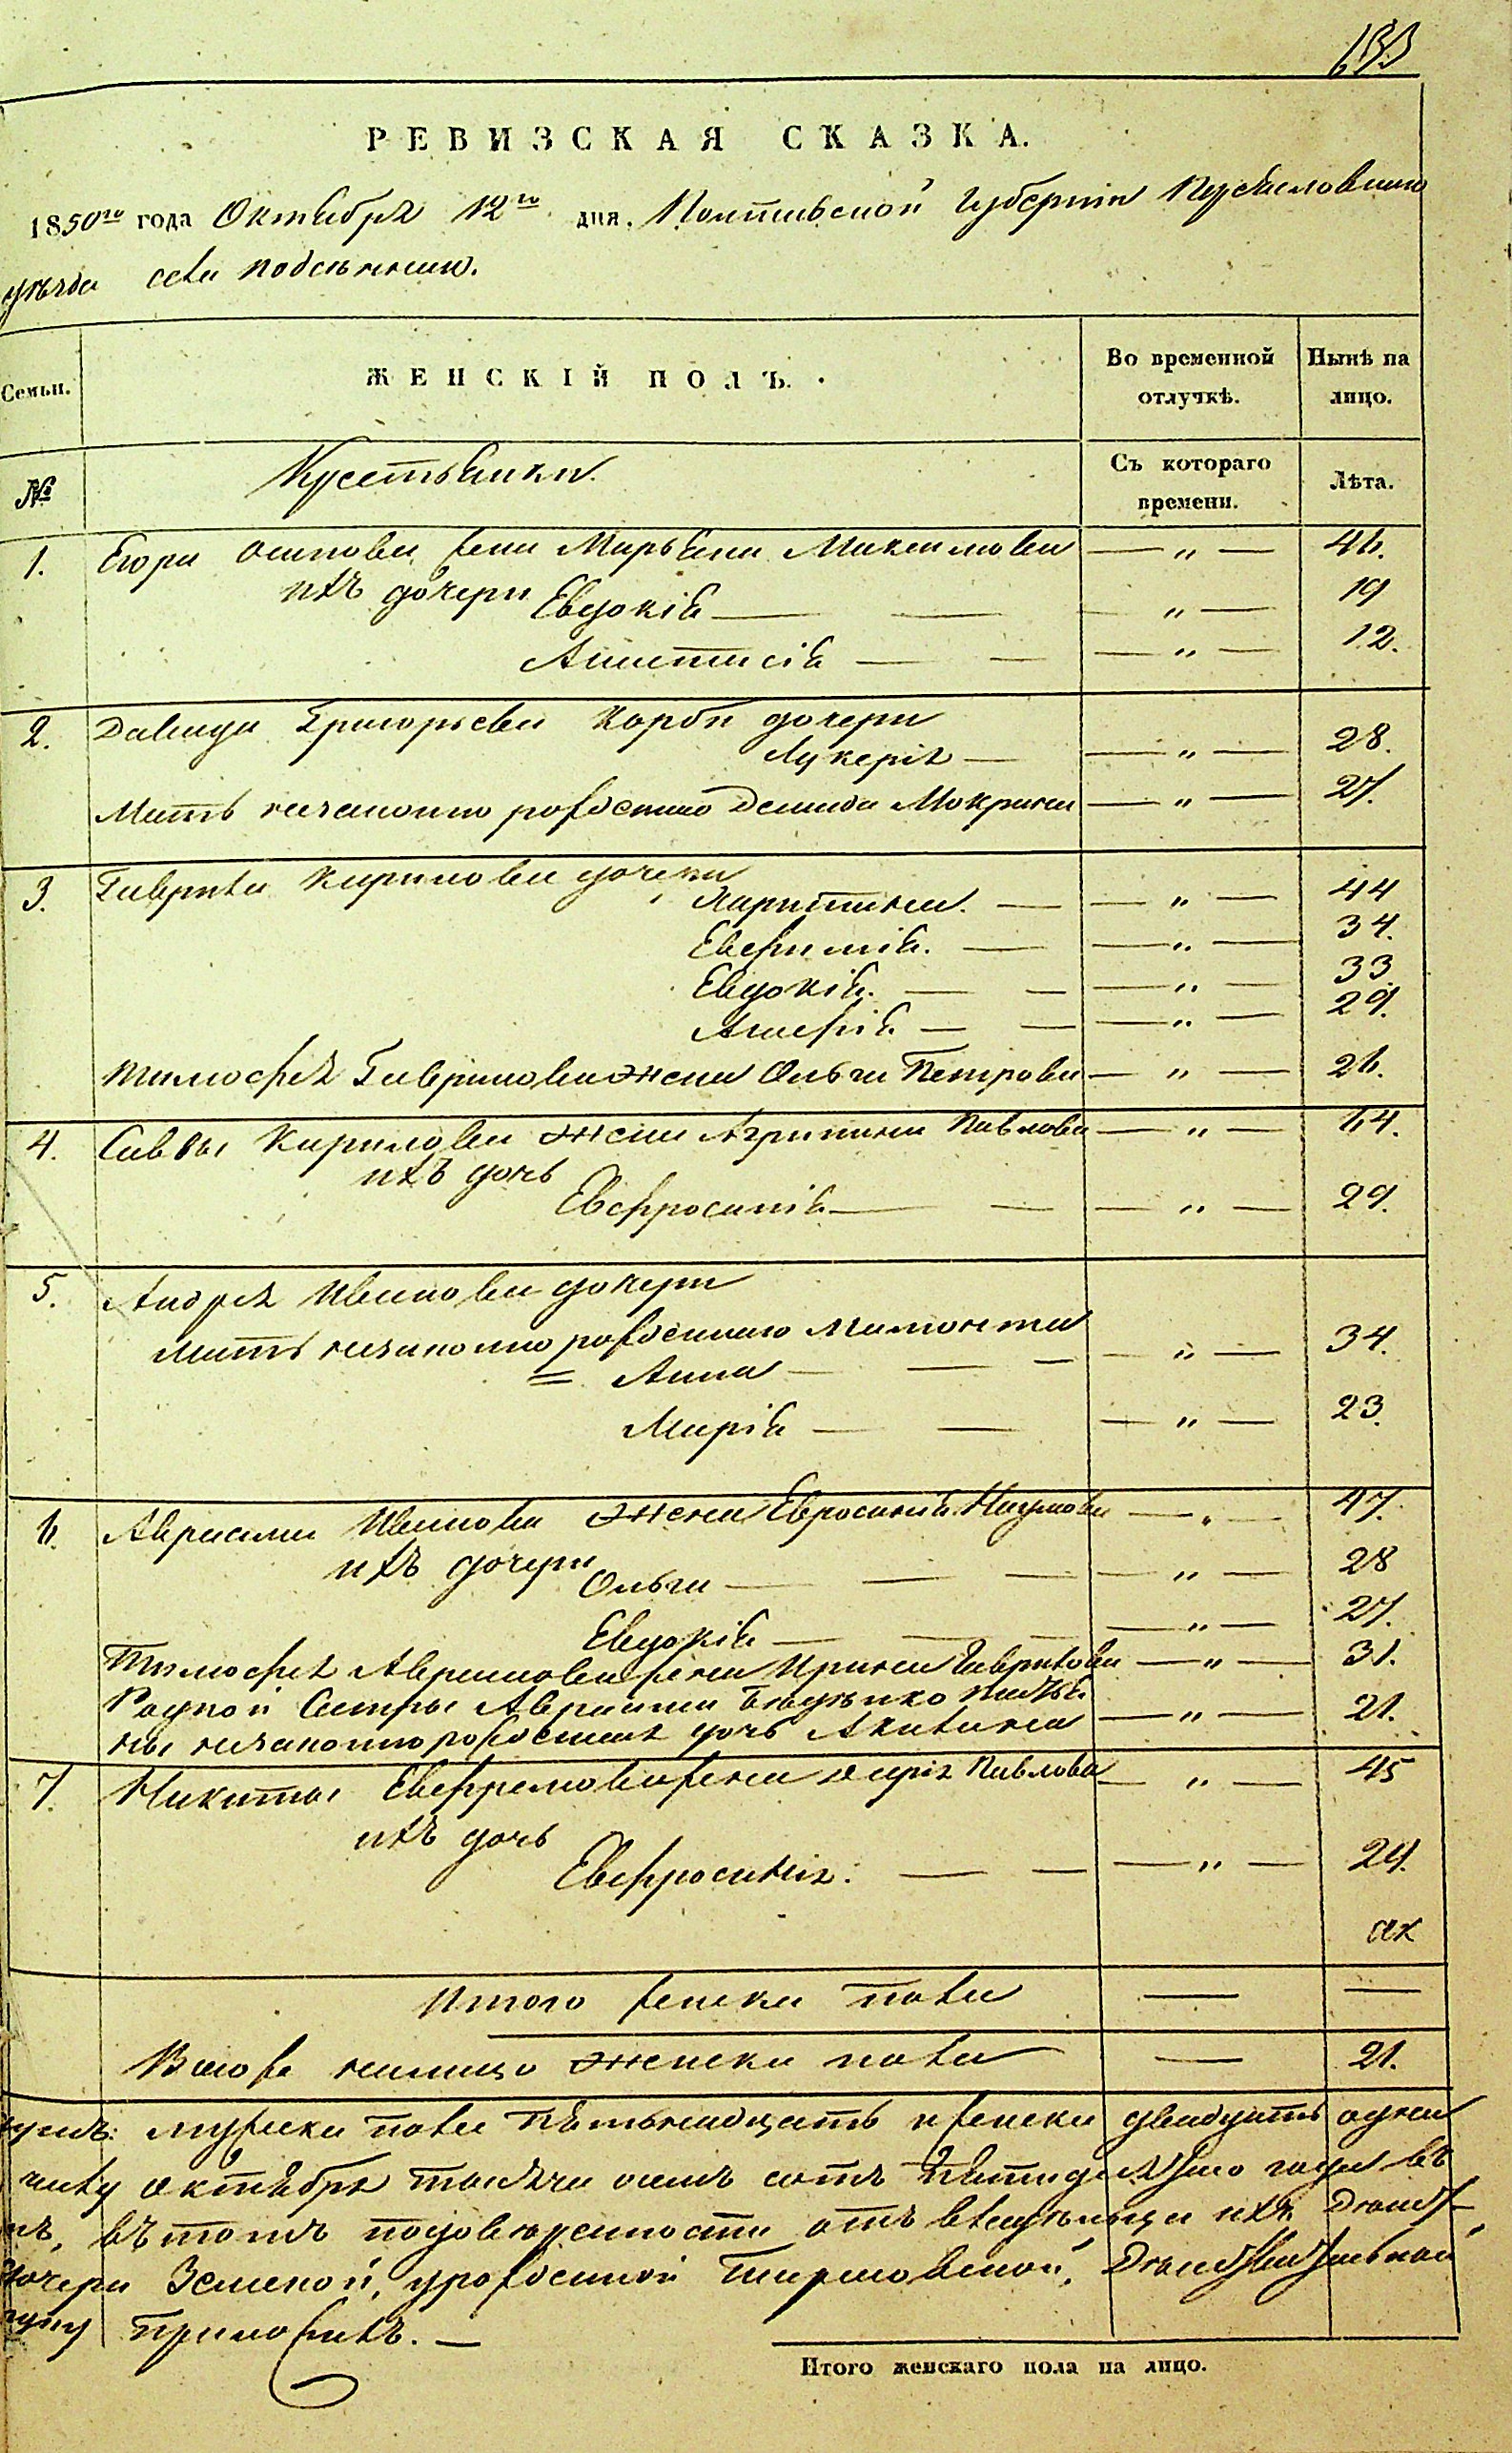 133
РЕВИЗСКАЯ СКАЗКА.
1850го года Октября 12го дня. Полтавской Губерніи Переяславскаго
уѣзда села Подсѣннаго.
Семьи. ЖЕНСКІЙ ПОЛЪ. Во временной отлучкѣ. Нынѣ на лицо.
№ Крестьянки. Съ котораго времени. Лѣта.
1. Егора Осипова жена Марьяна Максимова — „ — 46.
ихъ дочери Евдокія — „ — 19
Анастасія — „ — 12.
2. Давида Григорьева дочери
Лукерія — „ — 28.
Мать незаконно рожденно Демида Мокрина — „ — 27.
3. Гаврила Кирилова дочери
Харитина. — „ — 44
Евфимія. — „ — 34.
Евдокія. — „ — 33
Агафія — „ — 29.
Тимофея Гаврилова жена Ольга Петрова — „ — 26.
4. Саввы Кирилова жена Агрипина Павлова — „ — 64.
ихъ дочь
Евфросинія — „ — 29.
5. Андрея Иванова дочери
Мать незаконно рожденнаго Мамонта
= Анна — „ — 34.
Марія — „ — 23.
6. Авраама Иванова жена Евросинія Наумова — „ — 47.
ихъ дочери Ольга — „ — 28
Евдокія — „ — 27.
Тимофея Аврамова жена Ирина Гаврилова — „ — 31.
Родной Сестры Авраама
ны незаконно рожденная дочь Акилина — „ — 21.
7. Никиты Евфремова жена Дарія Павлова — „ — 45
ихъ дочь
Евфросинія. — „ — 24.
Итого женска пола — —
Вново налицо женска пола — 21.
мужска пола пятьнадцать и женска двадцать одна
октября тысяча осемъ сотъ пятидесятаго года въ
въ томъ отъ владѣлицы ихъ
дочери урожденной
приложилъ. —
Итого женскаго пола на лицо.